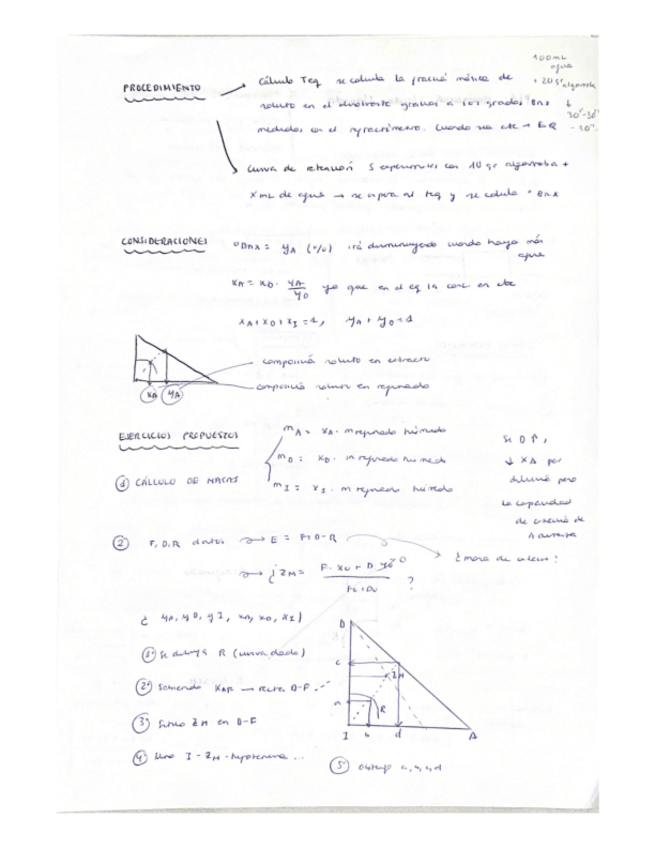 100 mL
agua
+ 20 gr algarroba
PROCEDIMIENTO
Cálculo Teq se calcula la fracció másica de
soluto en el disolvente gracias a los grados Brix
medidos con el refractómetro. Cuando sea cte → EQ
30'-30'
- 30''
Curva de retención 5 experimentos con 10 gr algarroba +
X mL de agua → se espera al teq y se calcula ° Brix
CONSIDERACIONES
°Brix = yA (%) irá disminuyendo cuando haya más
agua
xA = xD · yA/yD ya que en el eq la conc en cte
xA + xD + xI = 1, yA + yD = 1
composició soluto en extracto
composició soluto en refinado
xA yA
EJERCICIOS PROPUESTOS
mA = xA · m refinado húmedo
mD = xD · m refinado húmedo
mI = xI · m refinado húmedo
① CÁLCULO DE MASAS
Si D ↑,
↓ XA por
pero
la capacidad
de
A aumenta
② F, D, R datos → E = F + D - R
¿ masa de ?
→ ¿ ZM =
?
¿ yA, yD, yI, xA, xD, xI )
① Se dibuja R (curva dada)
② Sabiendo XAF → recta D-F
③ Sitúo ZM en D-F
④ Uno I - ZM - hipotenusa ...
⑤ Obtengo a, b, c, d
D
c
ZM
a
R
I b d A